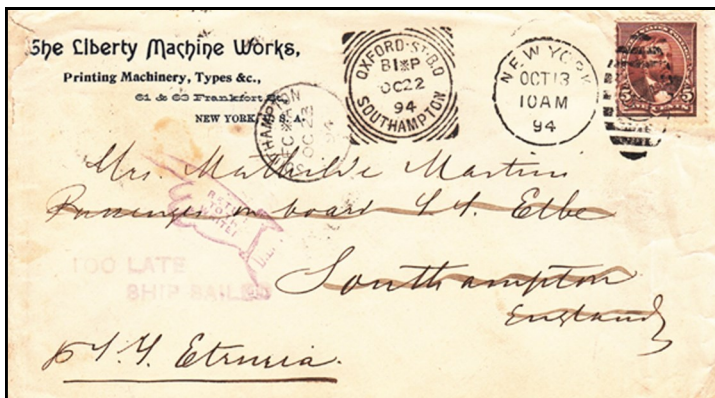 The Liberty Machine Works,
Printing Machinery, Types &c.,
61 & 63 Frankfort St.
NEW YORK, U.S.A.
OXFORD·ST·B.O
B1*P
OC22
94
SOUTHAMPTON
NEW YORK
OCT 13
10AM
94
5 5
SOUTHAMPTON
OC 22
94
Mrs. Mathilde Martini
Passenger on board S.S. Elbe
RETURN
TO THE
WRITER
TOO LATE
SHIP SAILED
Southampton
England
p S.S. Etruria.